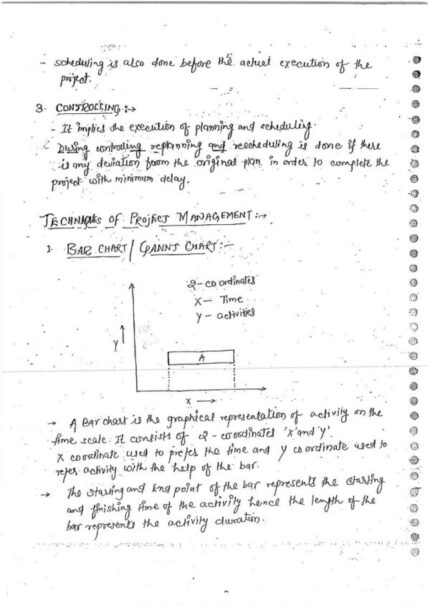 - scheduling is also done before the actual execution of the
project.
3. CONTROLLING :→
- It implies the execution of planning and scheduling.
- During controlling replanning and rescheduling is done if there
is any deviation from the original plan in order to complete the
project with minimum delay.
TECHNIQUES OF PROJECT MANAGEMENT :→
1. BAR CHART / GANNT CHART :-
2-coordinates
X - Time
Y - activities
Y
A
X →
→ A Bar chart is the graphical representation of activity on the
time scale. It consists of 2-coordinates 'x' and 'y'.
X coordinate used to prefer the time and Y coordinate used to
refer activity with the help of the bar.
→ The starting and End point of the bar represents the starting
and finishing time of the activity hence the length of the
bar represents the activity duration.